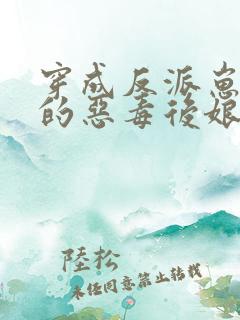 穿成反派崽
的惡毒後娘
陸松
未经同意禁止转载